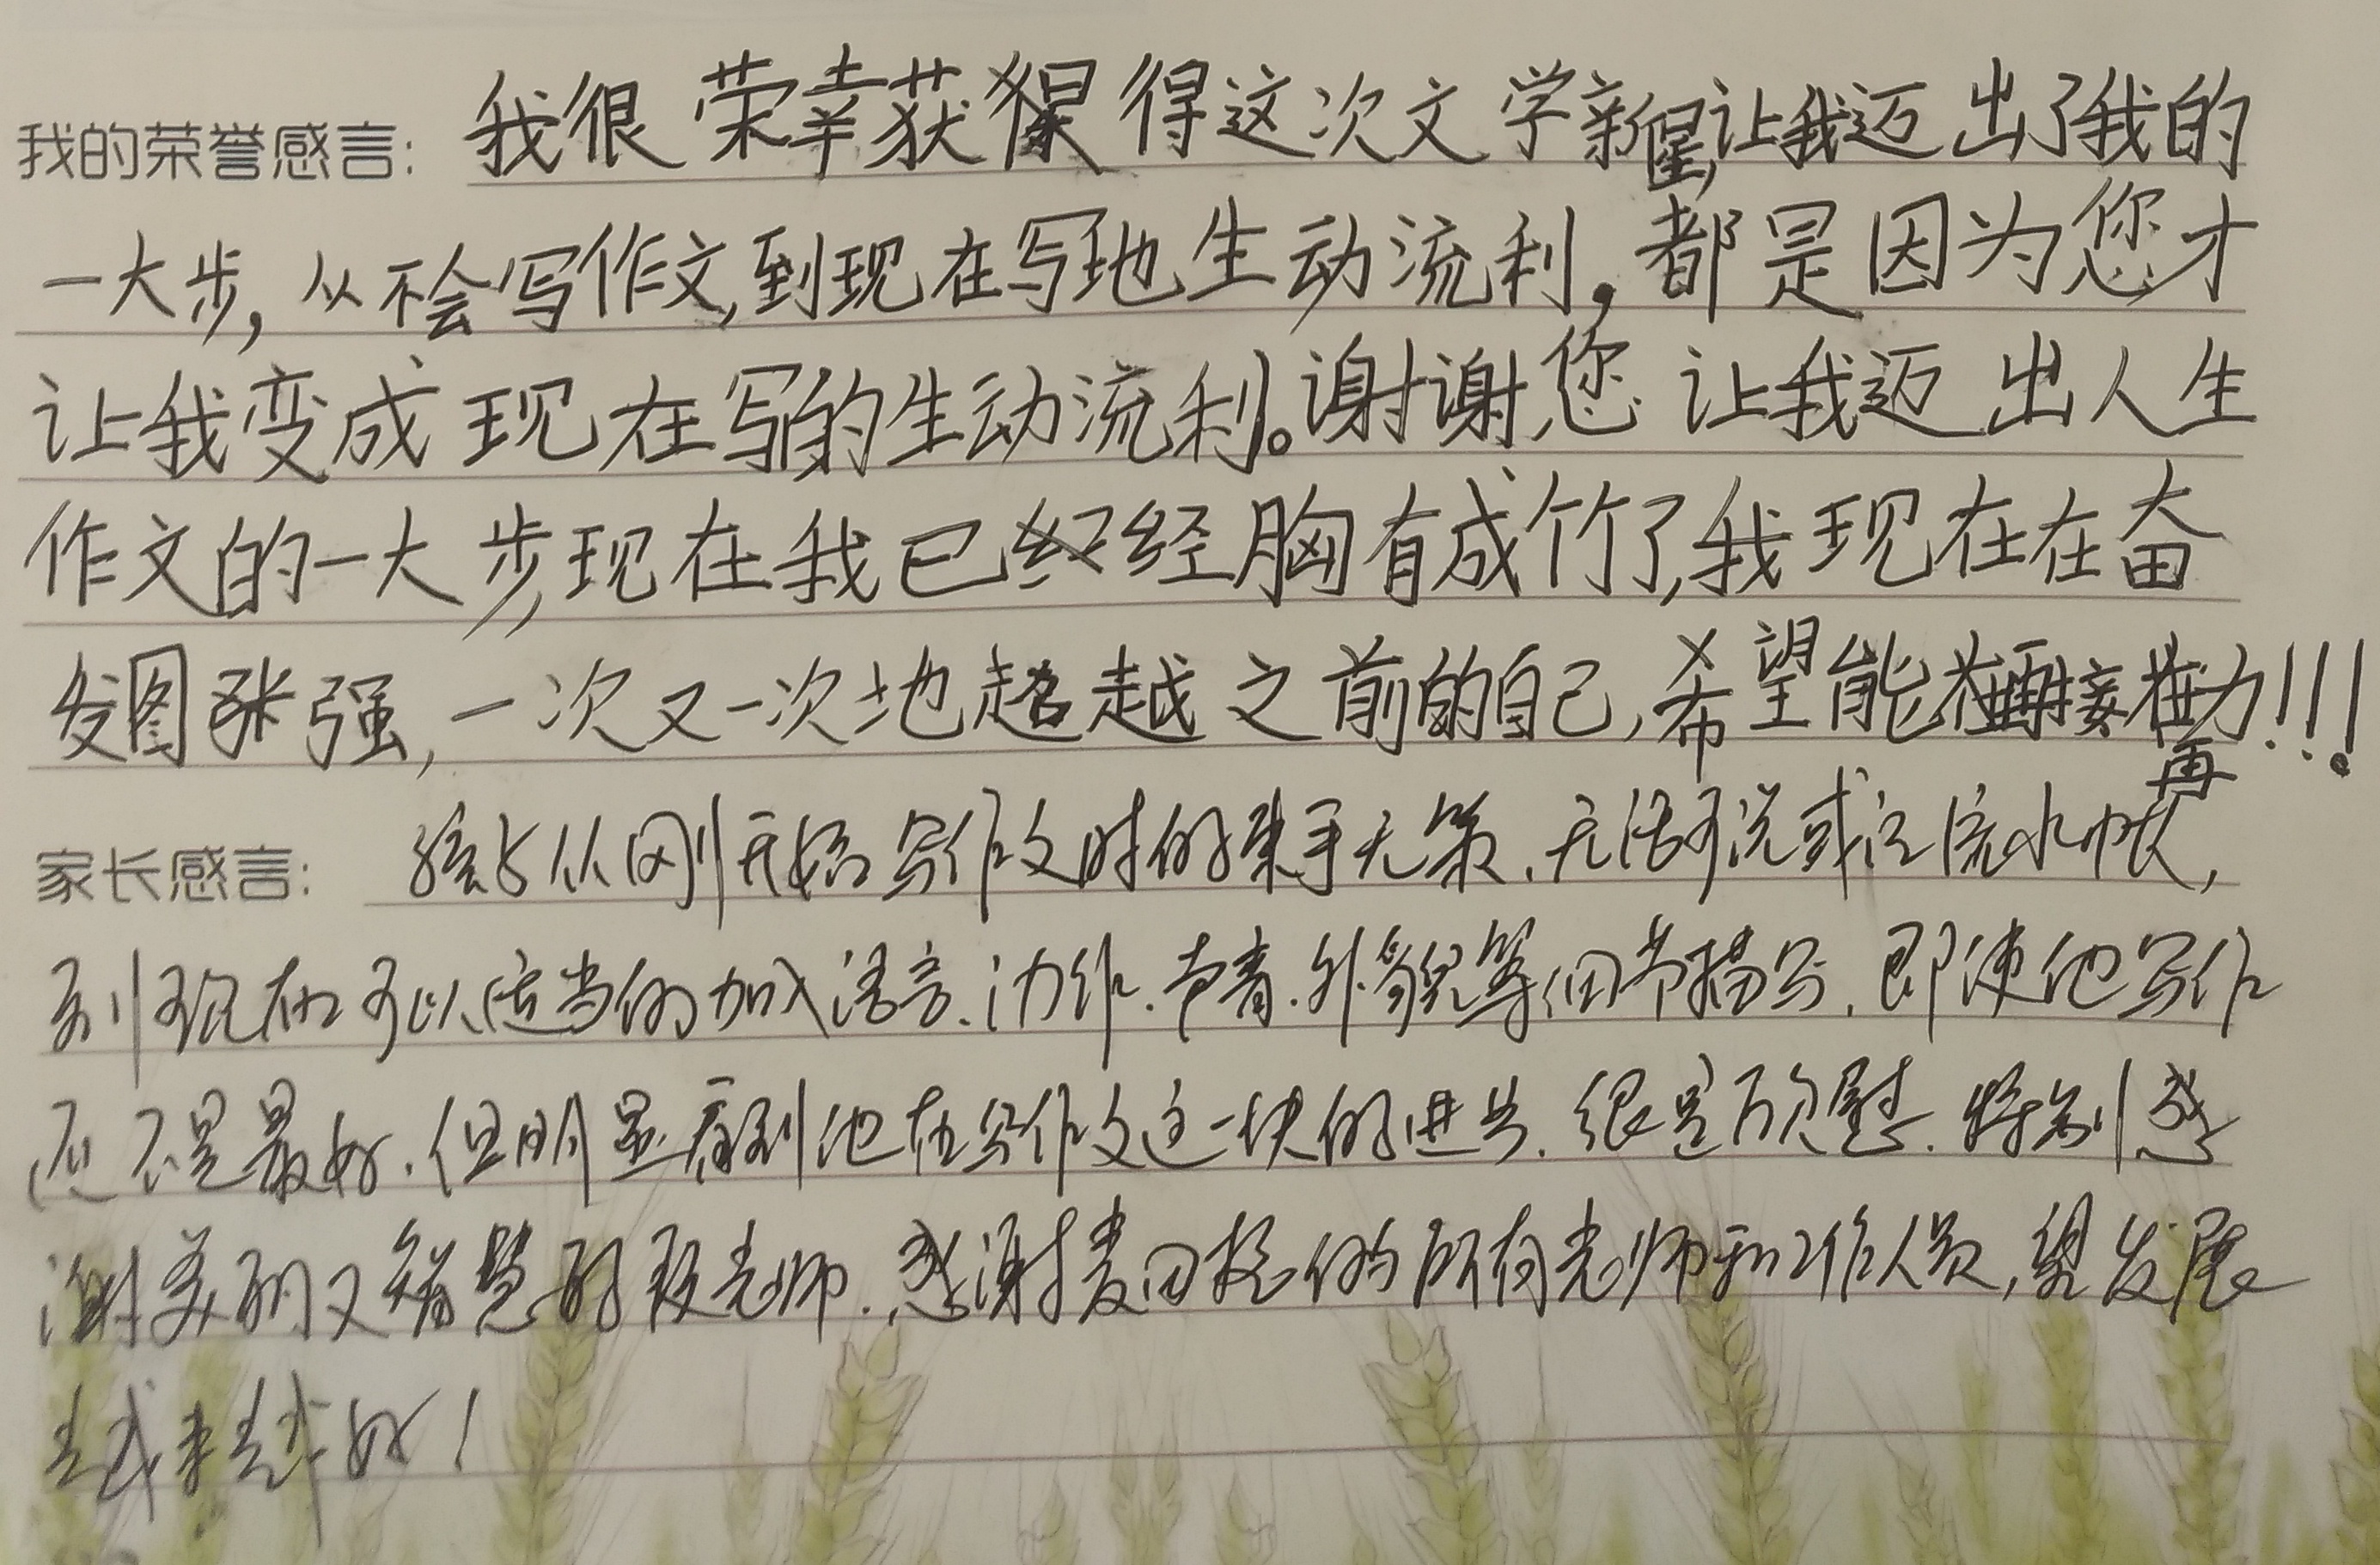 我的荣誉感言: 我很荣幸获得这次文学新星,让我迈出了我的
一大步,从不会写作文,到现在写地生动流利,都是因为您才
让我变成现在写的生动流利。谢谢您让我迈出人生
作文的一大步,现在我已经胸有成竹了,我现在在奋
发图张强,一次又一次地超越之前的自己,希望能再接再力!!!
家长感言: 孩子从刚开始写作文时的束手无策.无话可说或记流水帐,
到现在可以适当的加入语言.动作.声音.外貌等细节描写.即使他写作
还不是最好.但明显看到他在写作文这一块的进步.很是欣慰.特别感
谢美丽又智慧的段老师.感谢麦田校的所有老师和工作人员,望发展
越来越好!